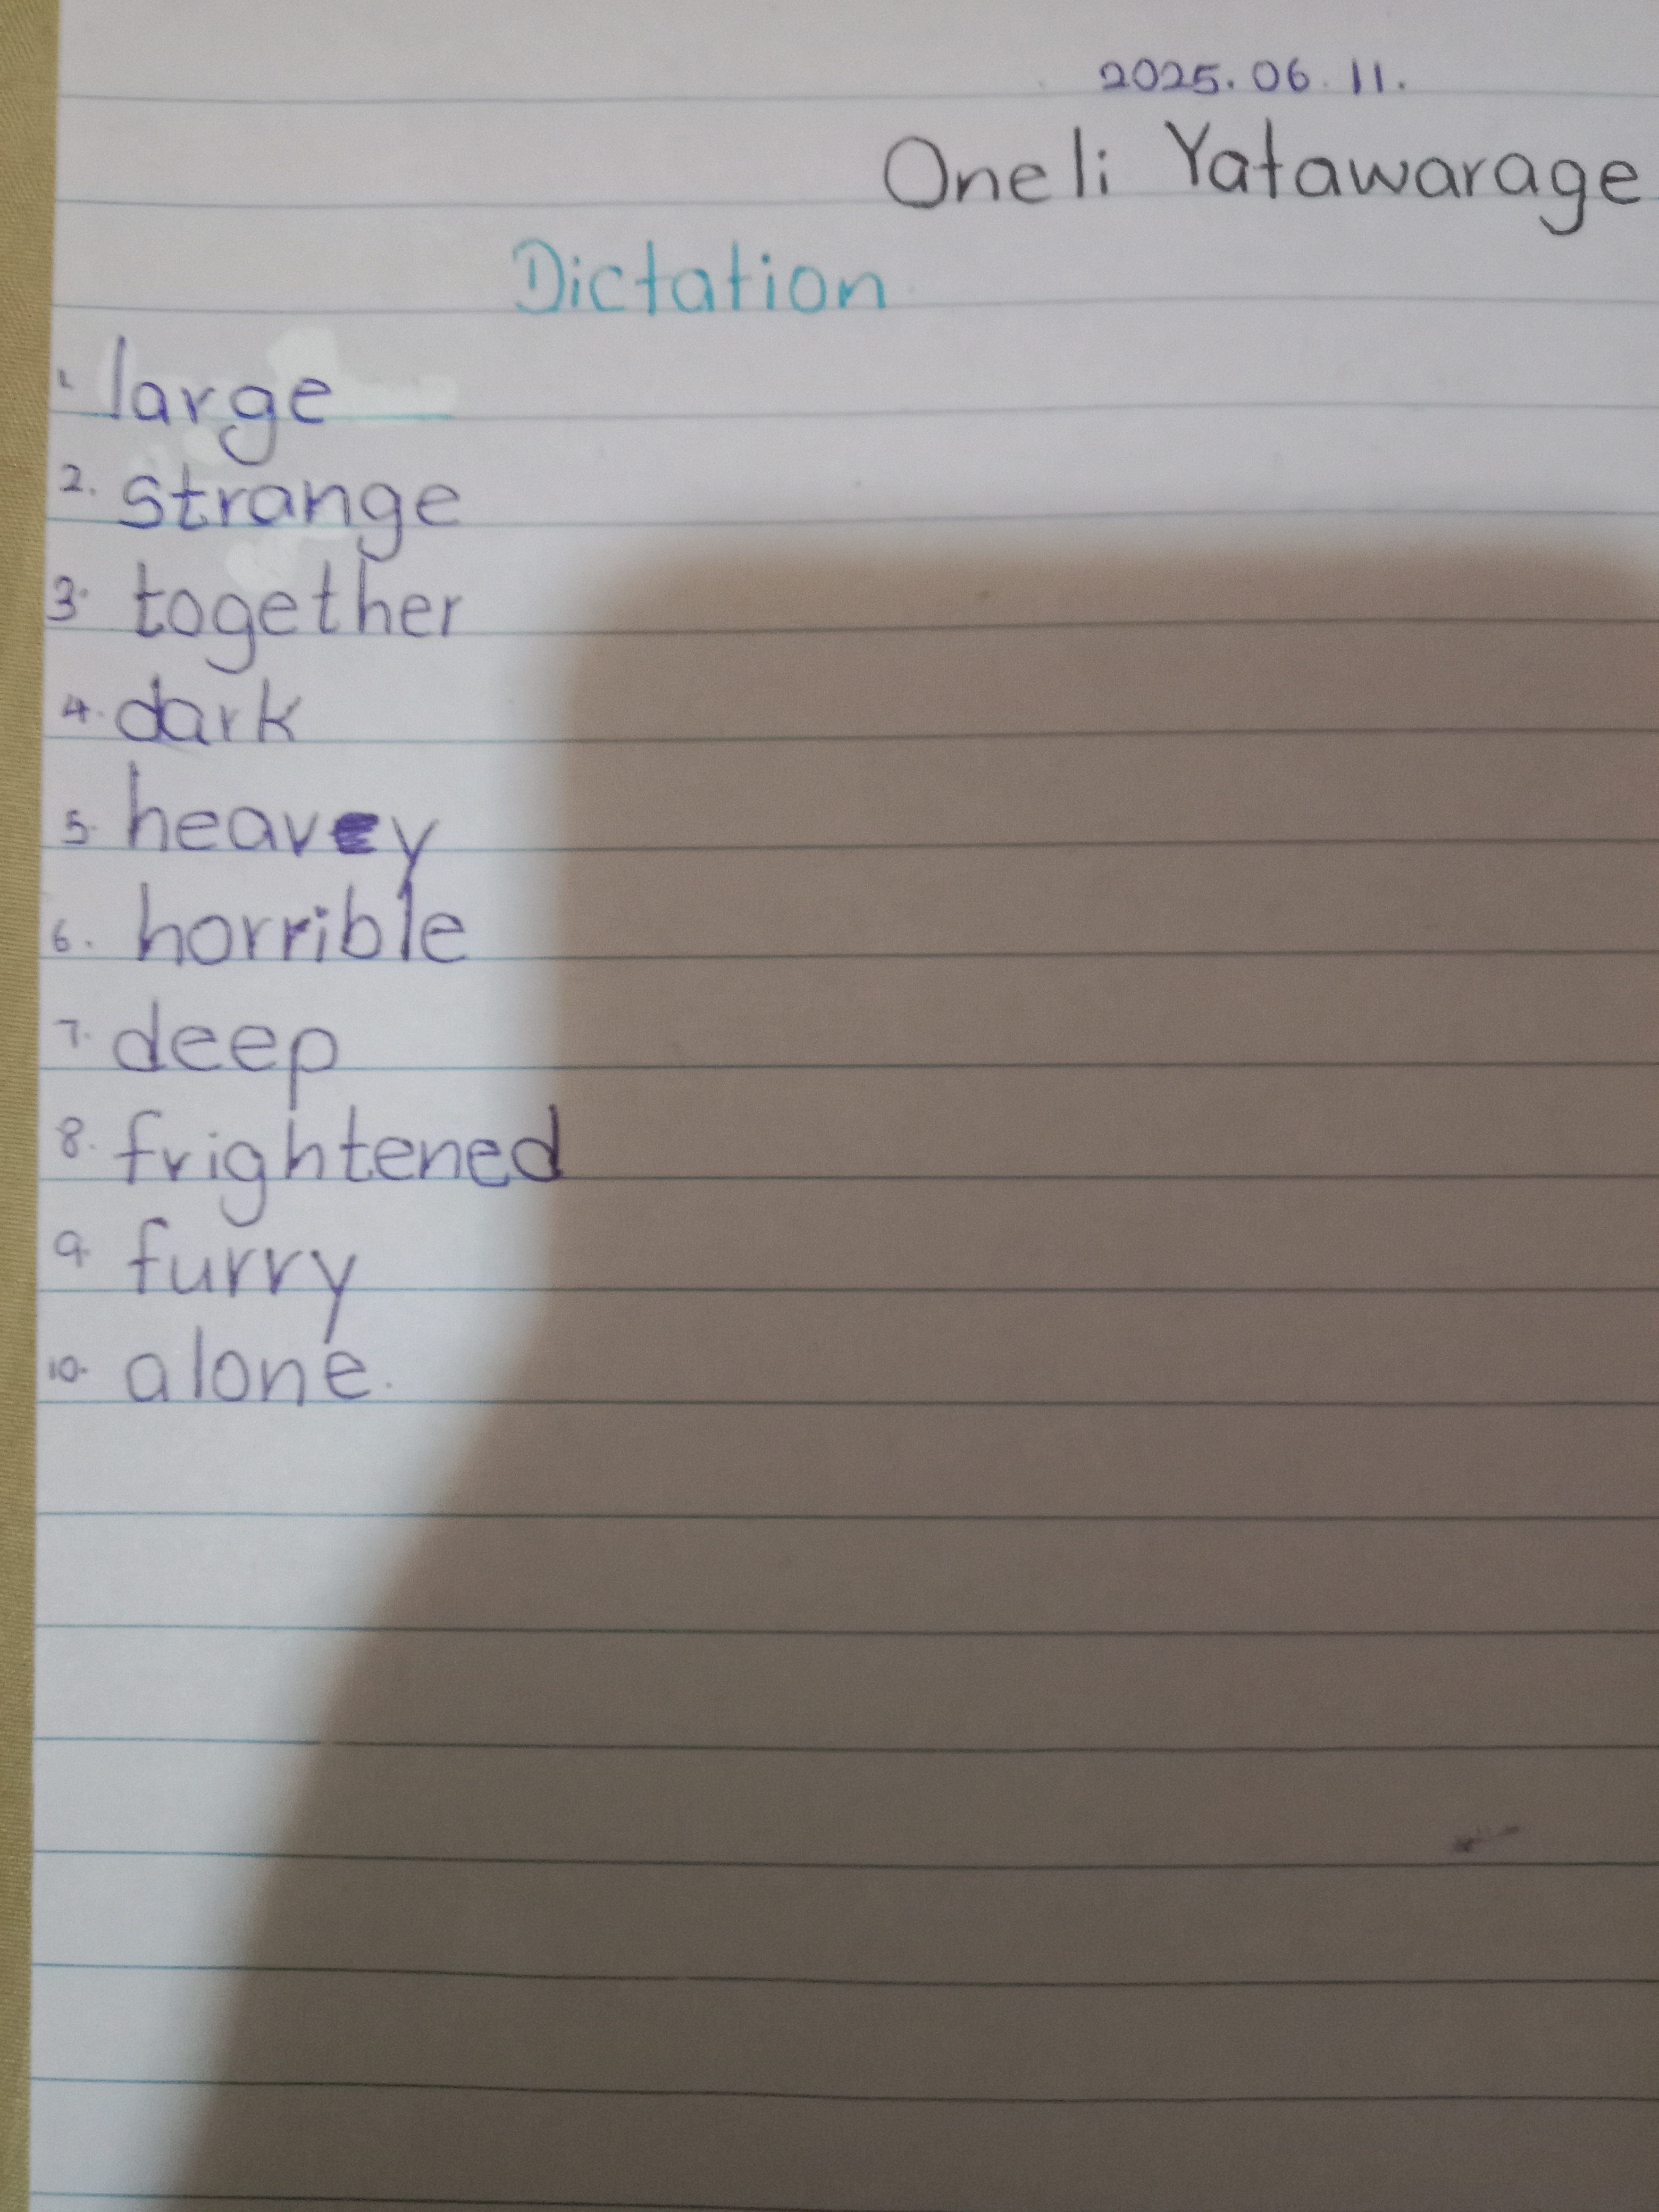 2025.06.11.
Oneli Yatawarage
Dictation
1. large
2. strange
3. together
4. dark
5. heavy
6. horrible
7. deep
8. frightened
9. furry
10. alone.